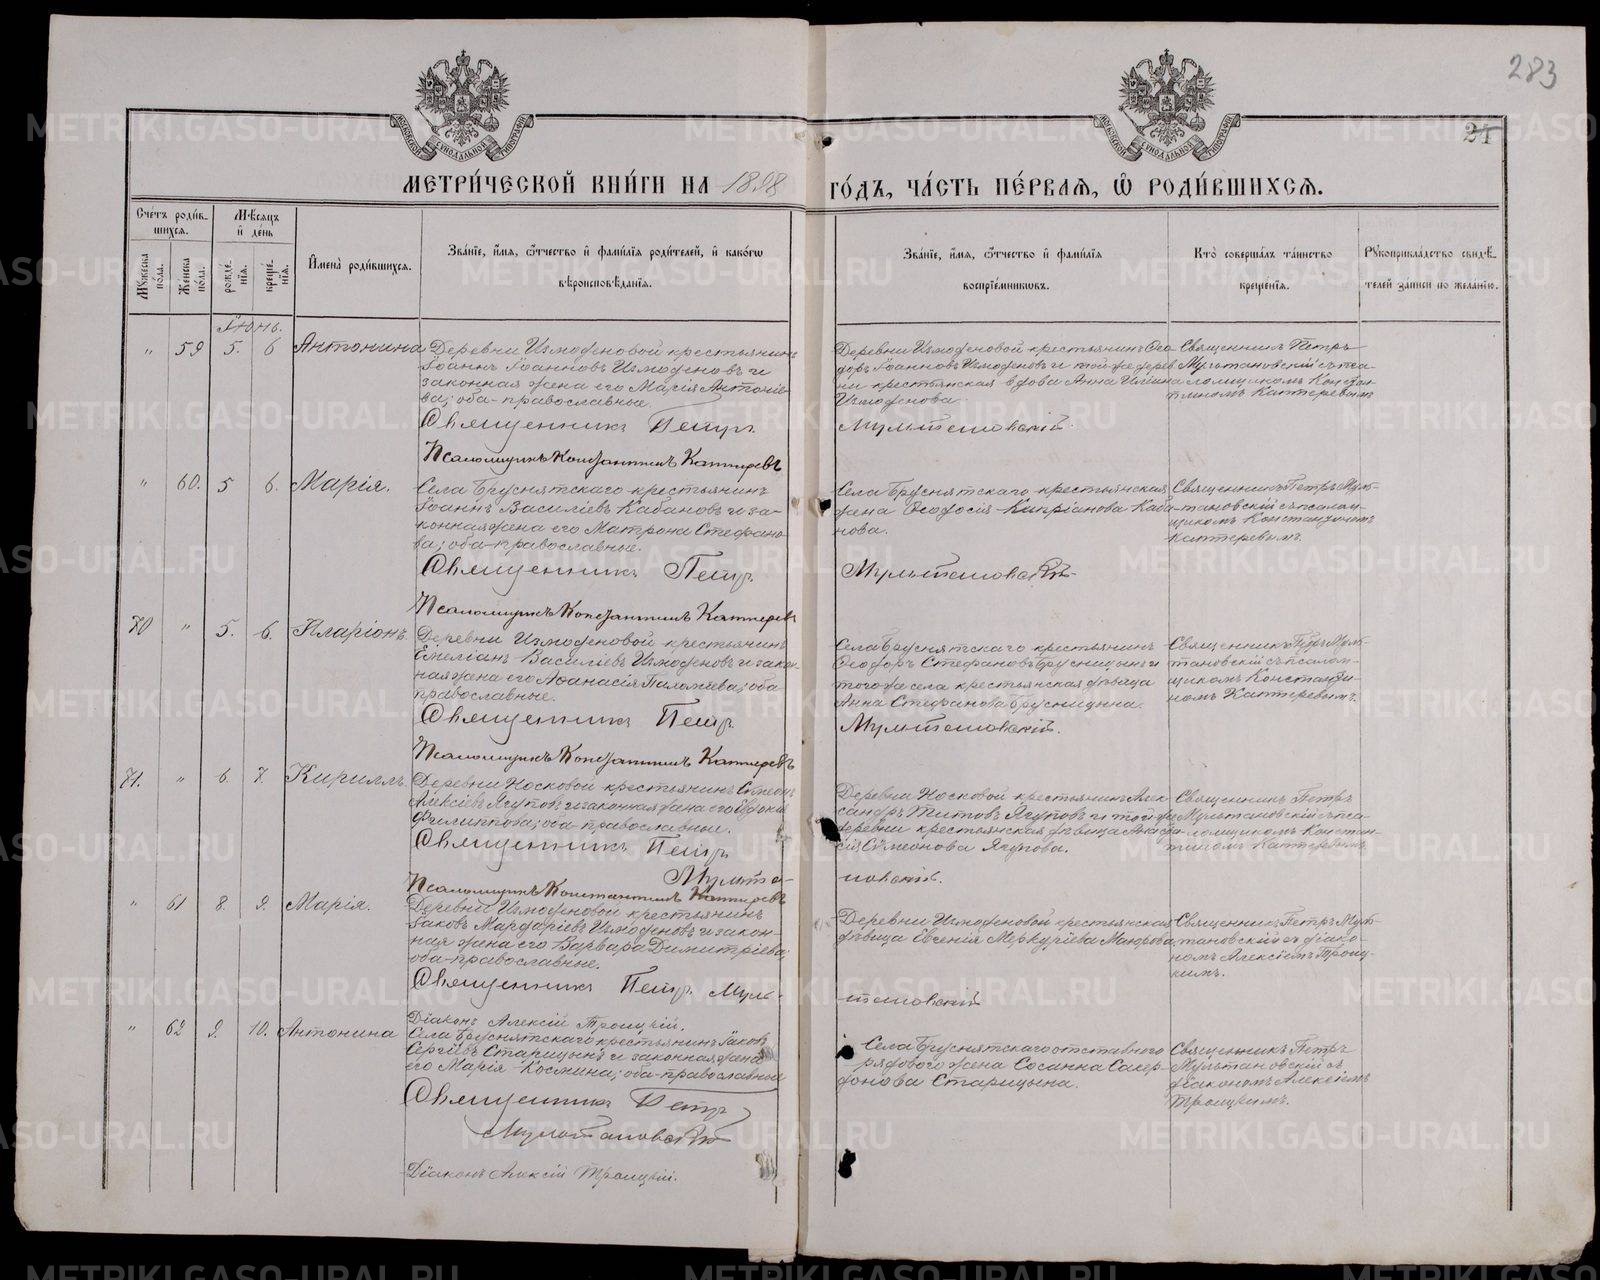 283
24
МЕТРИ́ЧЕСКОЙ КНИ́ГИ НА 1898 ГО́ДЪ, ЧА́СТЬ ПЕ́РВАЯ, Ѿ РОДИ́ВШИХСЯ.
Сче́тъ роди́в-
шихся.
Мꙋжеска по́ла.
Же́нска по́ла.
Мѣ́сяцъ и де́нь
рожде́нія.
креще́нія.
И́мена̀ роди́вшихся.
Зва́ніе, и́мя, ѻ́тчество и фами́лія роди́телей, и како́гѡ
вѣроисповѣ́данія.
Зва́ніе, и́мя, ѻ́тчество и фами́лія
воспріе́мниковъ.
Кто̀ соверша́лъ та́инство
креще́нія.
Рꙋкоприкла́дство свидѣ́-
телей за́писи по жела́нію.
Іюнь.
" 59 5. 6 Антонина
Деревни Измоденовой крестьянинъ
Іоаннъ Іоанновъ Измоденовъ и
законная жена его Марія Антоніе-
ва; оба православные.
Священникъ Петръ
Псаломщикъ Константинъ Каптеревъ
Деревни Измоденовой крестьянинъ Ѳео
доръ Іоанновъ Измоденовъ и той же дерев
ни крестьянская вдова Анна
Измоденова.
Мультановскій.
Священникъ Петръ
Мультановскій съ пса-
ломщикомъ Констан-
тиномъ Каптеревымъ
" 60. 5 6. Марія.
Села Бруснятскаго крестьянинъ
Іоаннъ Василіевъ Кабановъ и за-
конная жена его Матрона Стефано-
ва; оба православные.
Священникъ Петръ
Псаломщикъ Константинъ Каптеревъ
Села Бруснятскаго крестьянская
жена Ѳеодосія Кипріанова Каба-
нова.
Мультановскій
Священникъ Петръ Муль-
тановскій съ псалом-
щикомъ Константиномъ
Каптеревымъ.
70 " 5. 6. Иларіонъ
Деревни Измоденовой крестьянинъ
Емеліанъ Василіевъ Измоденовъ и закон-
ная жена его Аѳанасія Пиломіева; оба
православные.
Священникъ Петръ
Псаломщикъ Константинъ Каптеревъ
Села Бруснятскаго крестьянинъ
Ѳеодоръ Стефановъ Брусницынъ и
того же села крестьянская дѣвица
Анна Стефанова Брусницына.
Мультановскій.
Священникъ Петръ Муль-
тановскій съ псалом-
щикомъ Константи-
номъ Каптеревымъ.
71. " 6. 7. Кириллъ
Деревни Носковой крестьянинъ Сѵмеонъ
Алексіевъ Ягуповъ и законная жена его Евдокія
Филиппова; оба православные.
Священникъ Петръ
Мульта-
Псаломщикъ Константинъ Каптеревъ
Деревни Носковой крестьянинъ Алек
сандръ Титовъ Ягуповъ и той же
деревни крестьянская дѣвица
Сѵмеонова Ягупова.
новскій.
Священникъ Петръ
Мультановскій съ пса-
ломщикомъ Констан-
тиномъ Каптеревымъ
" 61 8. 9. Марія.
Деревни Измоденовой крестьянинъ
Іаковъ Мардаріевъ Измоденовъ и закон-
ная жена его Варвара Димитріева;
оба православные.
Священникъ Петръ Муль-
Діаконъ Алексій Троицкій.
Деревни Измоденовой крестьянская
дѣвица Евгенія Меркуріева Маюрова
тановскій
Священникъ Петръ Муль-
тановскій съ діако-
номъ Алексіемъ Троиц-
кимъ.
" 62 9. 10. Антонина
Села Бруснятскаго крестьянинъ Іаковъ
Сергіевъ Старицынъ и законная жена
его Марія Космина; оба православные
Священникъ Петръ
Мультановскій
Діаконъ Алексій Троицкій.
Села Бруснятскаго отставного
рядового жена Сосанна Спир-
донова Старицына.
Священникъ Петръ
Мультановскій съ
діакономъ Алексіемъ
Троицкимъ.
METRIKI.GASO-URAL.RU